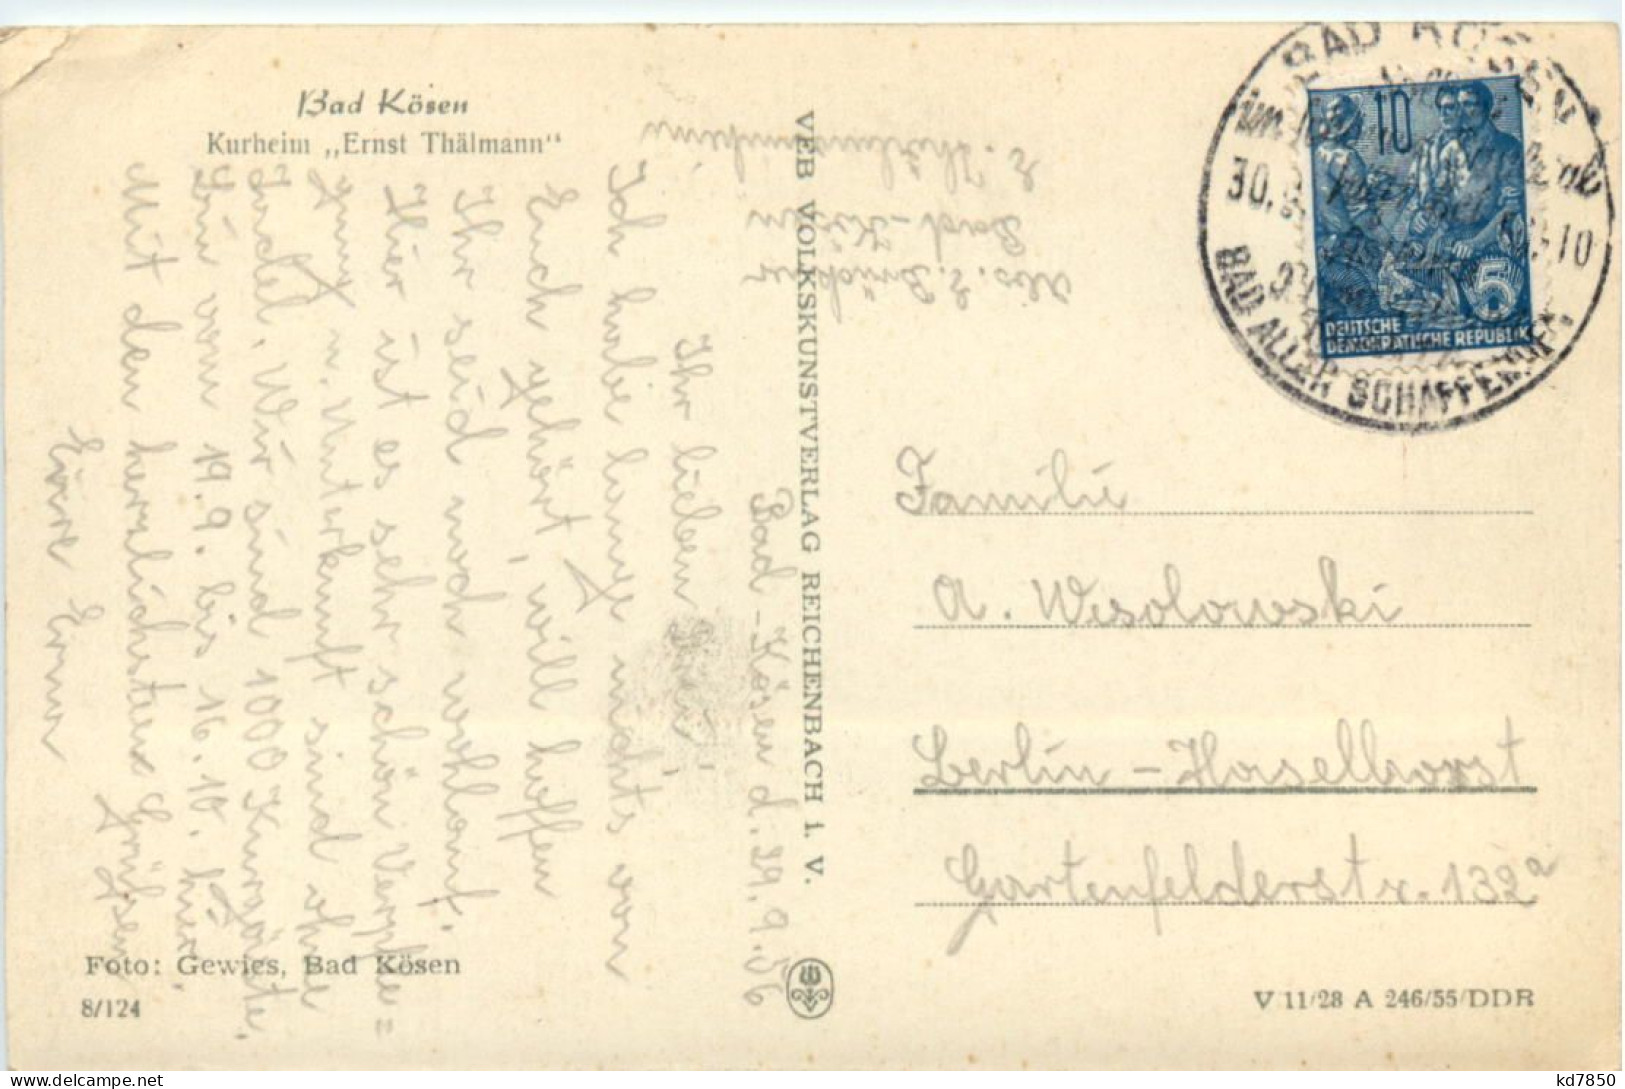 Bad Kösen
Kurheim „Ernst Thälmann“
Abs. E. Brückner
Bad-Kösen
E. Thälmannheim
Bad-Kösen d. 29.9.56
Ihr lieben
Ich habe lange nichts von
Euch gehört, will hoffen
Ihr seid noch wohlauf.
Hier ist es sehr schön Verpfle=
gung u. Unterkunft sind ohne
Tadel. Wir sind 1000 Kurgäste,
bin vom 19.9. bis 16.10. hier,
Mit den herzlichsten Grüßen
Eure Erna
Foto: Gewies, Bad Kösen
8/124
VEB VOLKSKUNSTVERLAG REICHENBACH i. V.
BAD KÖSEN
30.
-10
BAD ALLER SCHAFFENDEN
10
5
DEUTSCHE
DEMOKRATISCHE REPUBLIK
Familie
A. Wesolowski
Berlin-Haselhorst
Gartenfelderstr. 132a
V 11/28 A 246/55/DDR
kd7850